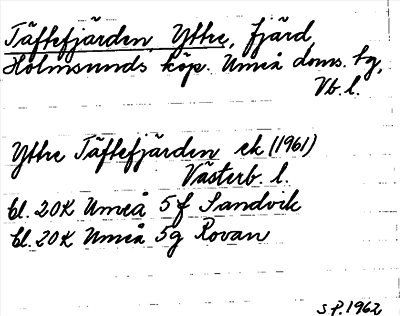 Täftefjärden, Yttre, fjärd,
Holmsunds köp. Umeå doms. tg,
Vb. l.
Yttre Täftefjärden ek (1961)
Västerb. l.
bl. 20K Umeå 5f Sandvik
bl. 20K Umeå 5g Rovan
SP. 1962